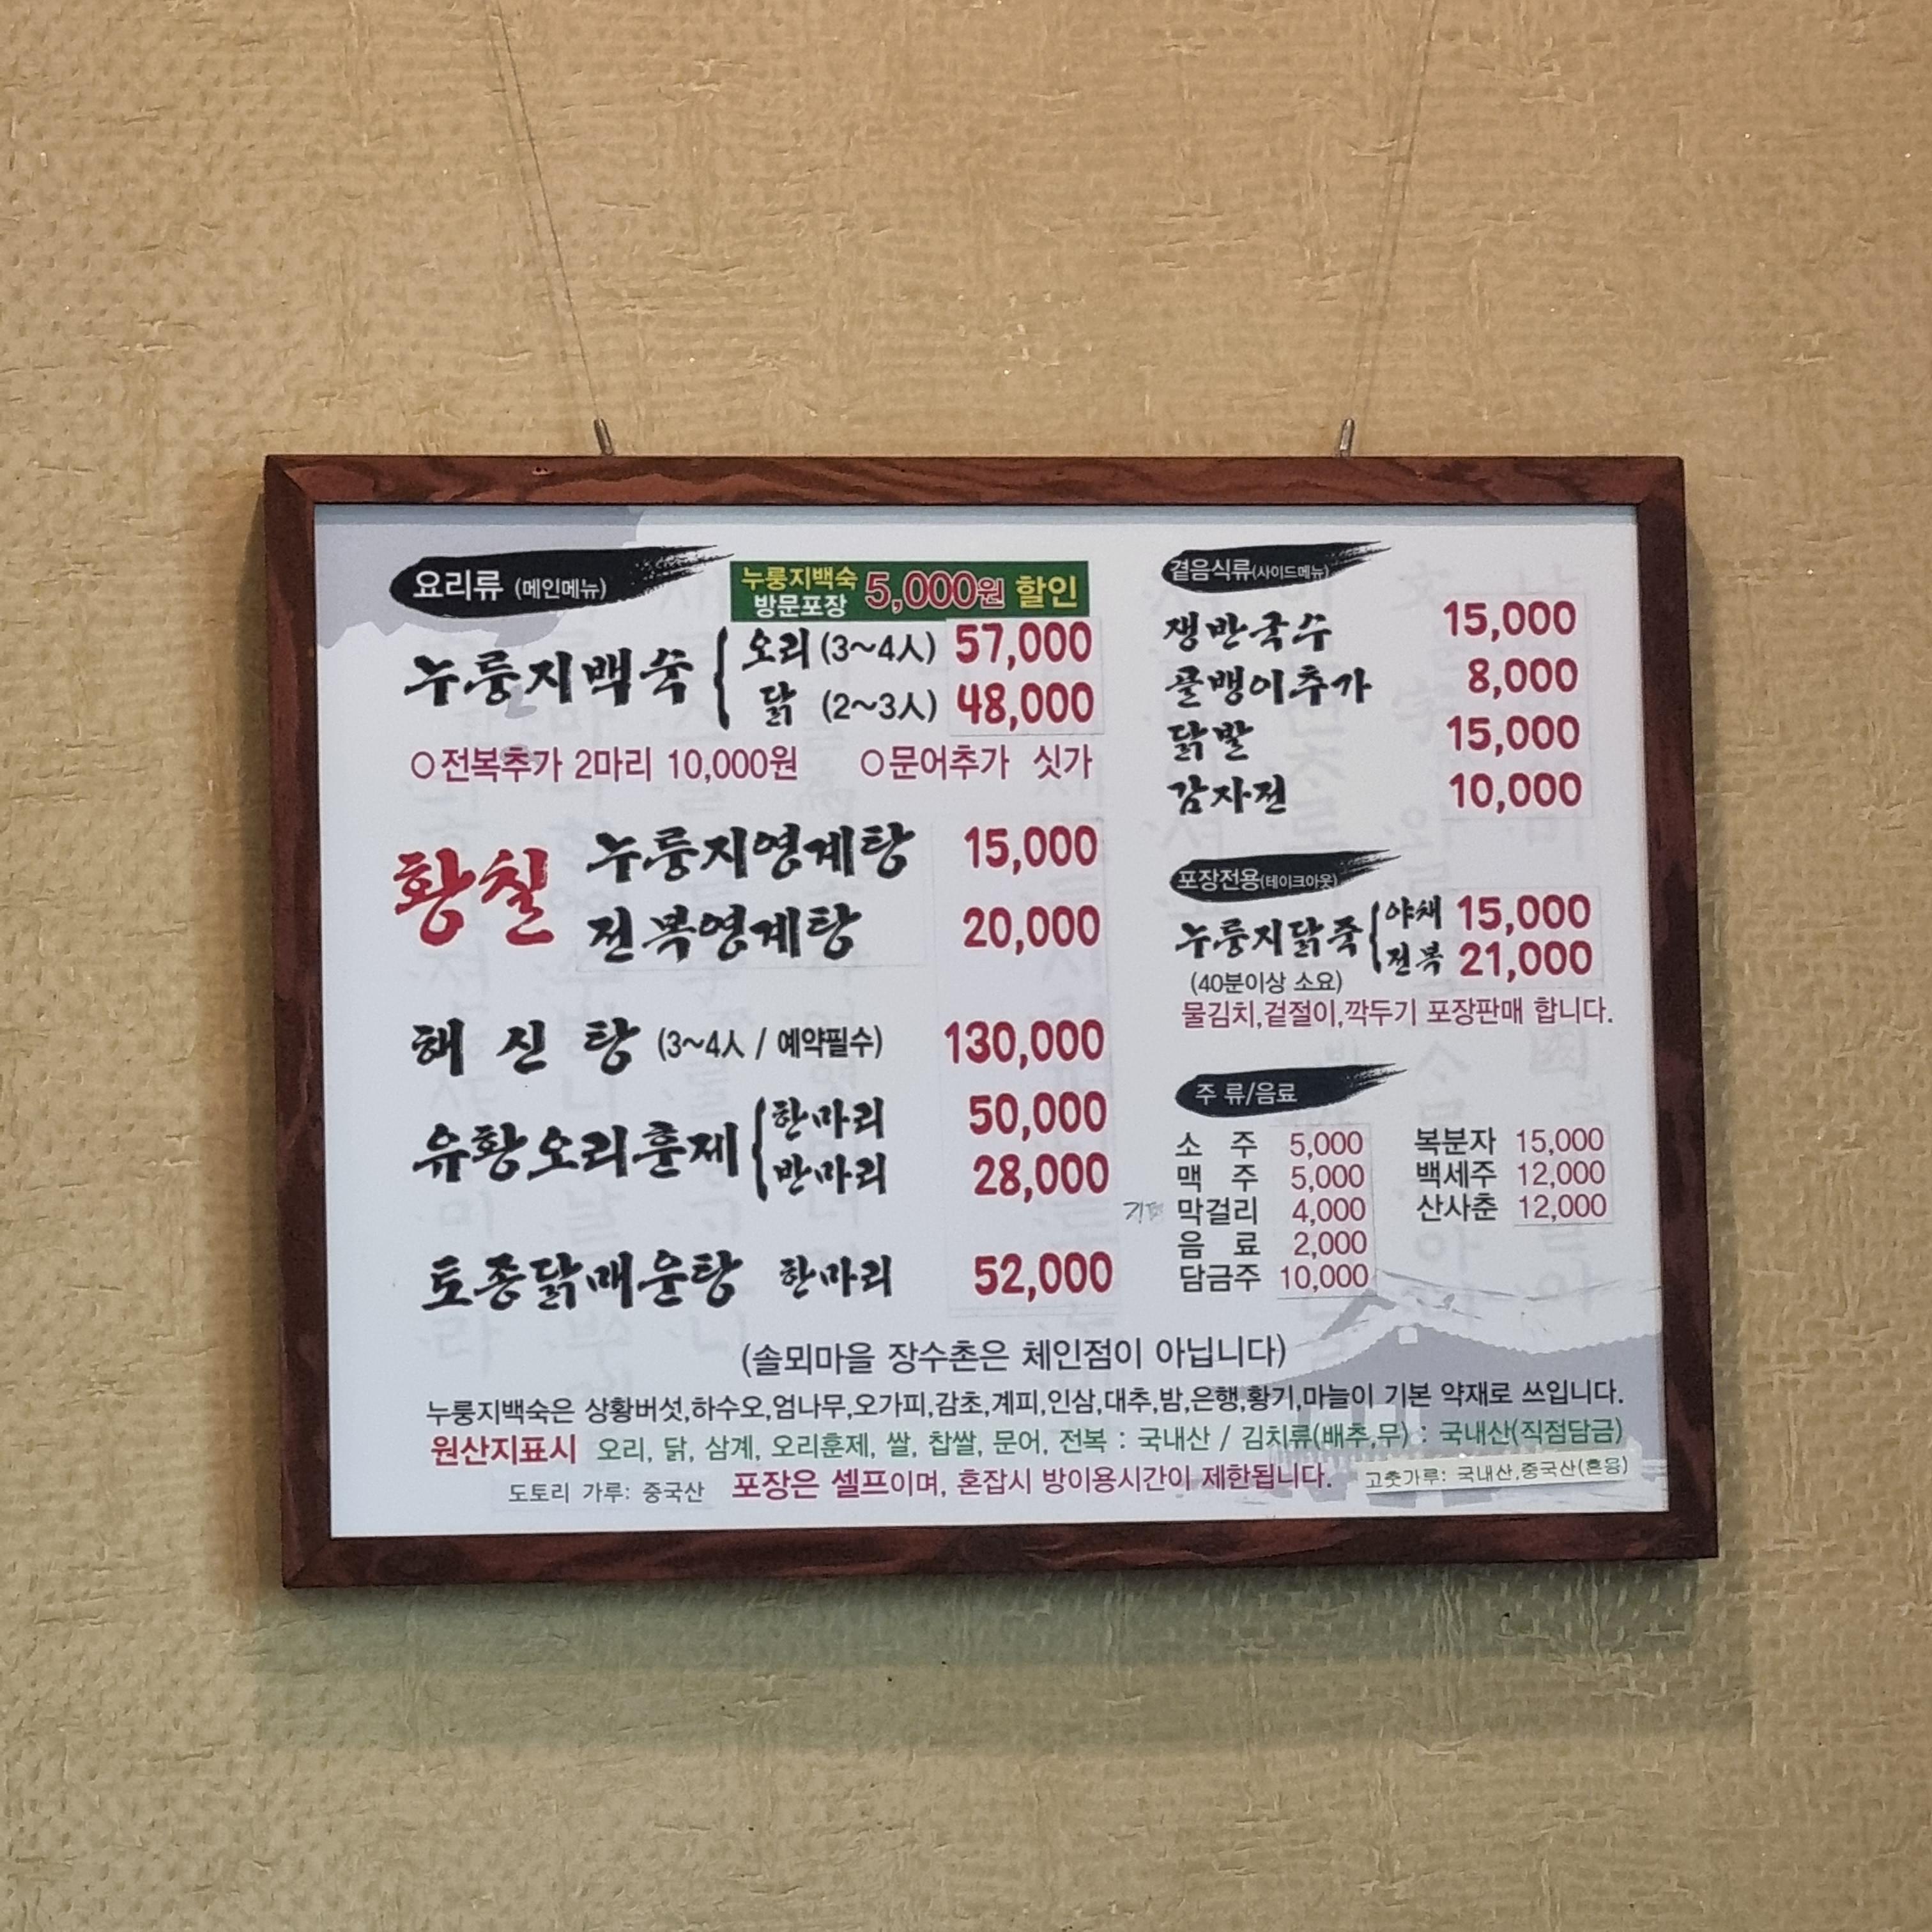 요리류 (메인메뉴)
누룽지백숙 방문포장 5,000원 할인
누룽지백숙
오리 (3~4人) 57,000
닭 (2~3人) 48,000
○전복추가 2마리 10,000원 ○문어추가 싯가
황칠
누룽지영계탕 15,000
전복영계탕 20,000
해신탕 (3~4人 / 예약필수) 130,000
유황오리훈제
한마리 50,000
반마리 28,000
토종닭매운탕 한마리 52,000
곁음식류(사이드메뉴)
쟁반국수 15,000
골뱅이추가 8,000
닭발 15,000
감자전 10,000
포장전용(테이크아웃)
누룽지닭죽
야채 15,000
전복 21,000
(40분이상 소요)
물김치,겉절이,깍두기 포장판매 합니다.
주 류/음료
소 주 5,000
맥 주 5,000
막걸리 4,000
음 료 2,000
담금주 10,000
복분자 15,000
백세주 12,000
산사춘 12,000
(솔뫼마을 장수촌은 체인점이 아닙니다)
누룽지백숙은 상황버섯,하수오,엄나무,오가피,감초,계피,인삼,대추,밤,은행,황기,마늘이 기본 약재로 쓰입니다.
원산지표시 오리, 닭, 삼계, 오리훈제, 쌀, 찹쌀, 문어, 전복 : 국내산 / 김치류(배추,무) : 국내산(직접담금)
도토리 가루: 중국산 포장은 셀프이며, 혼잡시 방이용시간이 제한됩니다. 고춧가루: 국내산,중국산(혼용)